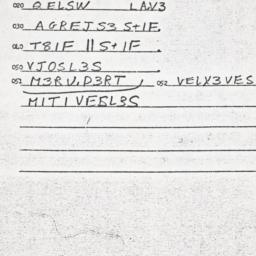 020 QELSW LAV3
030 AGREJS3 S+IF.
040 T8IF || S+IF .
050 VJOSL3S .
052 M3RU,D3RT , 052 VELX3VES
MITIVESL3S